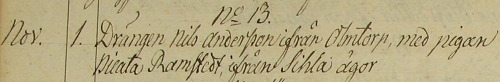 No 13.
Nov. 1. Drängen Nils Andersson ifrån Olmtorp, med pigan
Meata Ramstedt, ifrån Sihla ägor